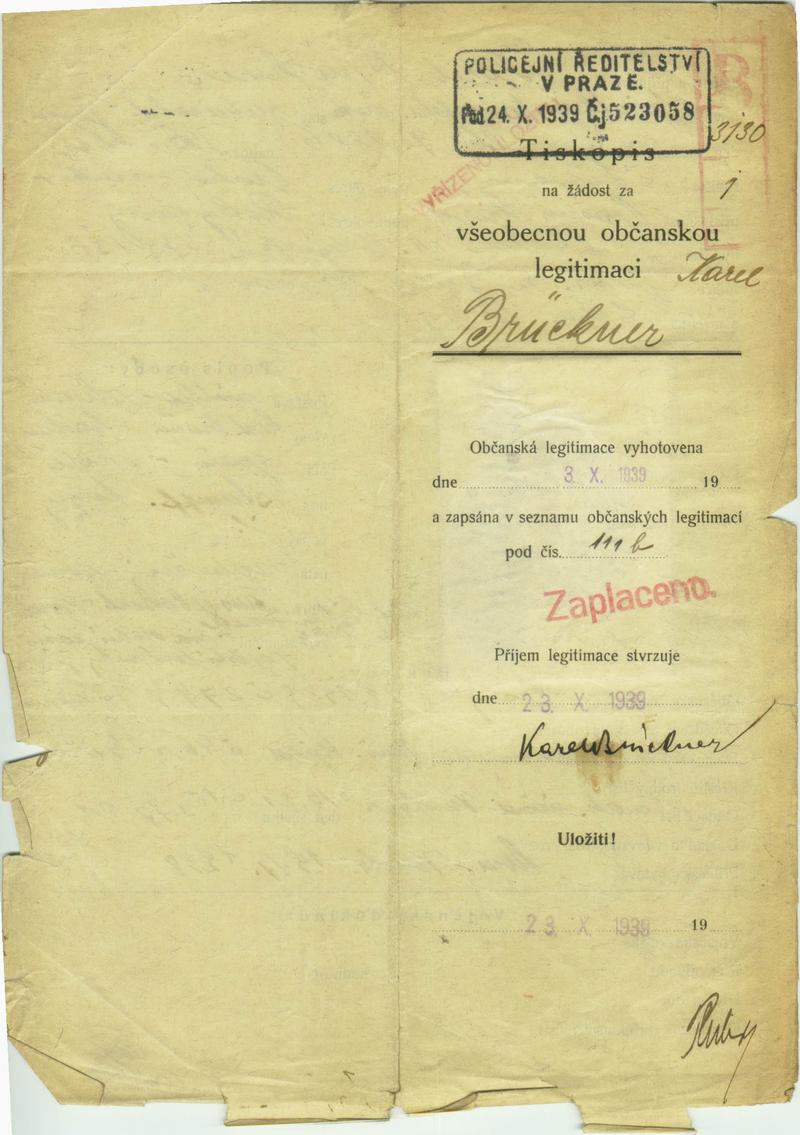 POLICEJNÍ ŘEDITELSTVÍ
V PRAZE.
24. X. 1939 Čj 523058
3130
Tiskopis
1
na žádost za
všeobecnou občanskou
legitimaci Karel
Brückner
Občanská legitimace vyhotovena
dne 3. X. 1939 19
a zapsána v seznamu občanských legitimací
pod čís. 111 b
Zaplaceno.
Příjem legitimace stvrzuje
dne 23 X 1939
Karel Brückner
Uložiti!
23 X 1939 19